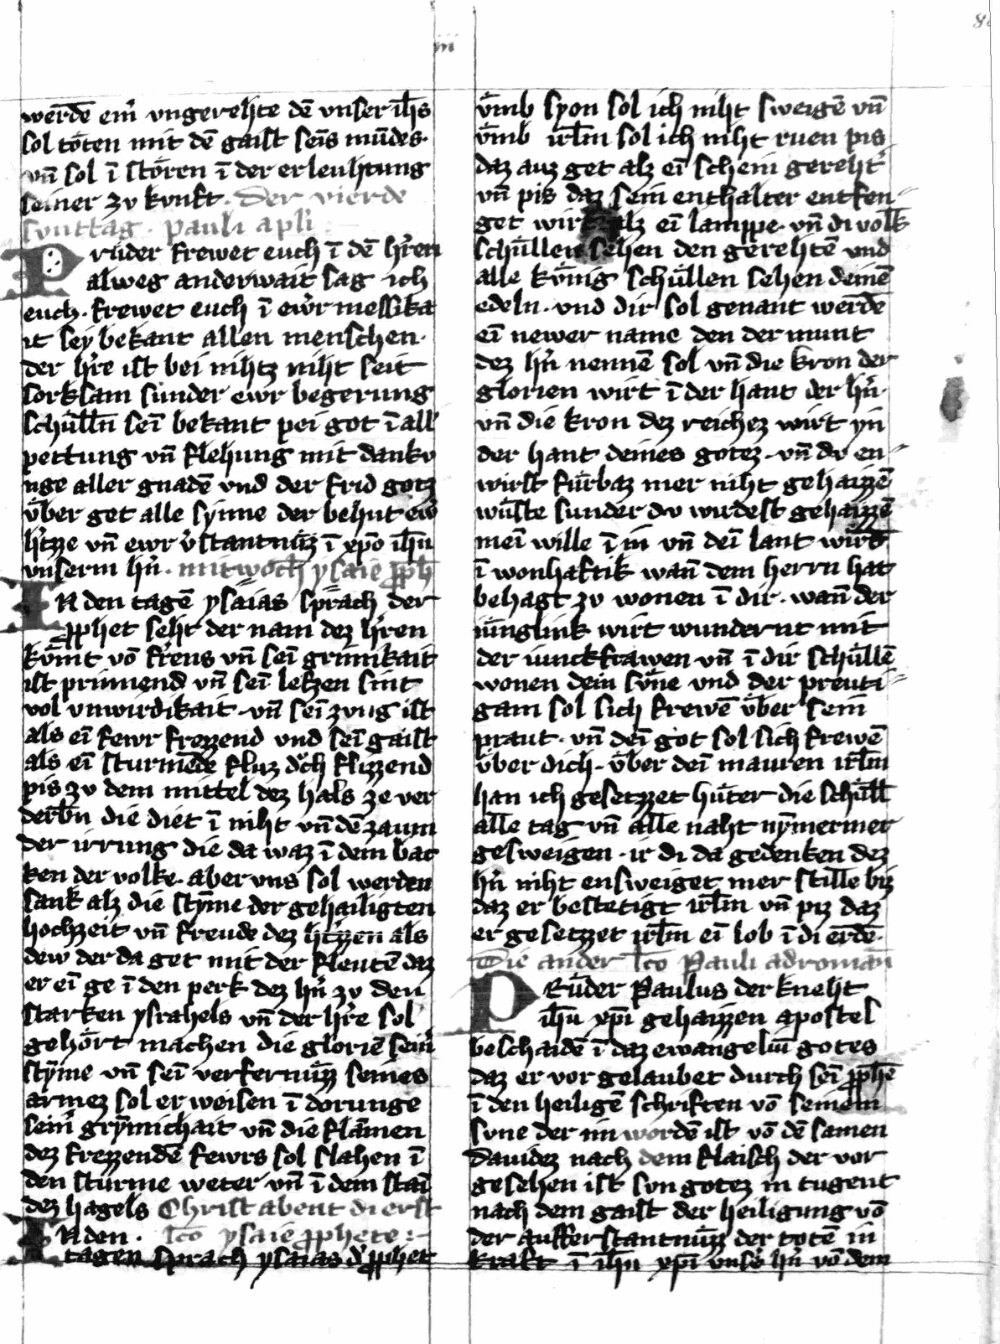 iii
8
werdē em̄ vngerehte dē vnser ih̄s
sol tōten mit dē gaist seīs mūdes·
vn̄ sol ī stōren ī der erleuhtung
seiner zv kvnft· der vierde
svnttag· pauli apli
Prüder frewet euch ī dē hr̄en
alweg anderwait sag ich
euch· frewet euch ī ewr̄ messika
it sey bekant allen menschen·
der hr̄e ist bei nihtz niht seit
sorksam sunder ewr begerung
schüll̄n seī bekant pei got ī all̄
pettung vn̄ flehung mit dankv
nge aller gnadē vnd der frid gotz
v̈ber get alle synne der behut ew̄
hr̄tze vn̄ ewr v̄stantnüz ī xp̄o ih̄u
vnserm hn̄· mitwoch ysaie ꝓph̄
In den tagē ysaias sprach der
ꝓphet seht der nam dez hr̄ren
kv̄mt vō frens vn̄ seī grimikait
ist prinnend vn̄ seī lebzen sint
vol vnwirdikait· vn̄ seī zvng ist
als eī fewr frezzend vnd seī gaist
als eī sturmēde fluz dc̄h flizzend
pis zv dem mittel dez hals ze ver
derbn̄ die diet ī niht vn̄ dē zaum
der irrung die da waz ī dem bac
ken der volke· aber vns sol werden
sank alz die stȳme der gehailigten
hochzeit vn̄ freude dez hr̄tzen als
dew der da get mit der fleutē daz
er eī ge ī den perk dez hn̄ zv den
starken ysrahels vn̄ der hr̄e sol
gehōrt machen die gloriē seīn̄
stȳme vn̄ seī verfernüzz seines
armez sol er weisen ī dorunge
seīn̄ grȳmichait vn̄ die flāmen
dez frezzendē fewrs sol slahen ī
den sturme weter vn̄ ī dem staī
dez hagels Christ abent di erst
In den· lc̄o ysaie ꝓphete:-
tagen sprach ysaias d̄ ꝓphet
v̈mb syon sol ich niht sweigē vn̄
v̈mb irl̄m sol ich niht ruen pis
daz auz get alz eī schein gereht̄
vn̄ pis daz sein enthalter entfen
get wirt alz eī lamppe· vn̄ di volk
schüllen sehen den gerehtē vnd
alle kv̈nig schüllen sehen deinē
edeln· vnd dir sol genant werdē
eī newer name den der munt
dez hn̄ nennē sol vn̄ die kron der
glorien wirt ī der hant der hn̄·
vn̄ die kron dez reichez wirt yn
der hant deines gotez· vn̄ dv en
wirst fürbaz mer niht gehaizzē
wüste sunder dv wirdest gehaizzē
meī wille ī in vn̄ deī lant wirt
ī wonhaftik wan̄ dem herrn hat
behagt zv wonen ī dir· wan̄ der
iünglink wirt wundernt mit
der iunckfrawen vn̄ ī dir schüllē
wonen dein sv̈ne vnd der preuti
gam sol sich frewē v̈ber sein
praut· vn̄ deī got sol sich frewē
v̈ber dich· v̈ber deī mauren irl̄m
han ich gesetzzet hüter die schüll̄
alle tag vn̄ alle naht nȳmermer
gesweigen· ir di da gedenken dez
hn̄ niht ensweiget mer stille biz
daz er bestetigt irl̄m vn̄ piz daz
er gesetzzet irl̄m eī lob ī di erdē·
Die ander lc̄o Pauli ad roman̄
Prüder Paulus der kneht
ih̄u xp̄i gehaizzen apostel
beschaidē ī daz ewangeliū gotes
daz er vor gelaubet durch seī ꝓphē
ī den heiligē schriften vō seinem
svne der im wordē ist vō dē samen
dauidez nach dem flaisch der vor
gesehen ist svn gotez in tugent
nach dem gaist der heiligung vō
der aufferstantnüzz der totē in
kraft ī ih̄u xp̄i vnsē hn̄ vō dem